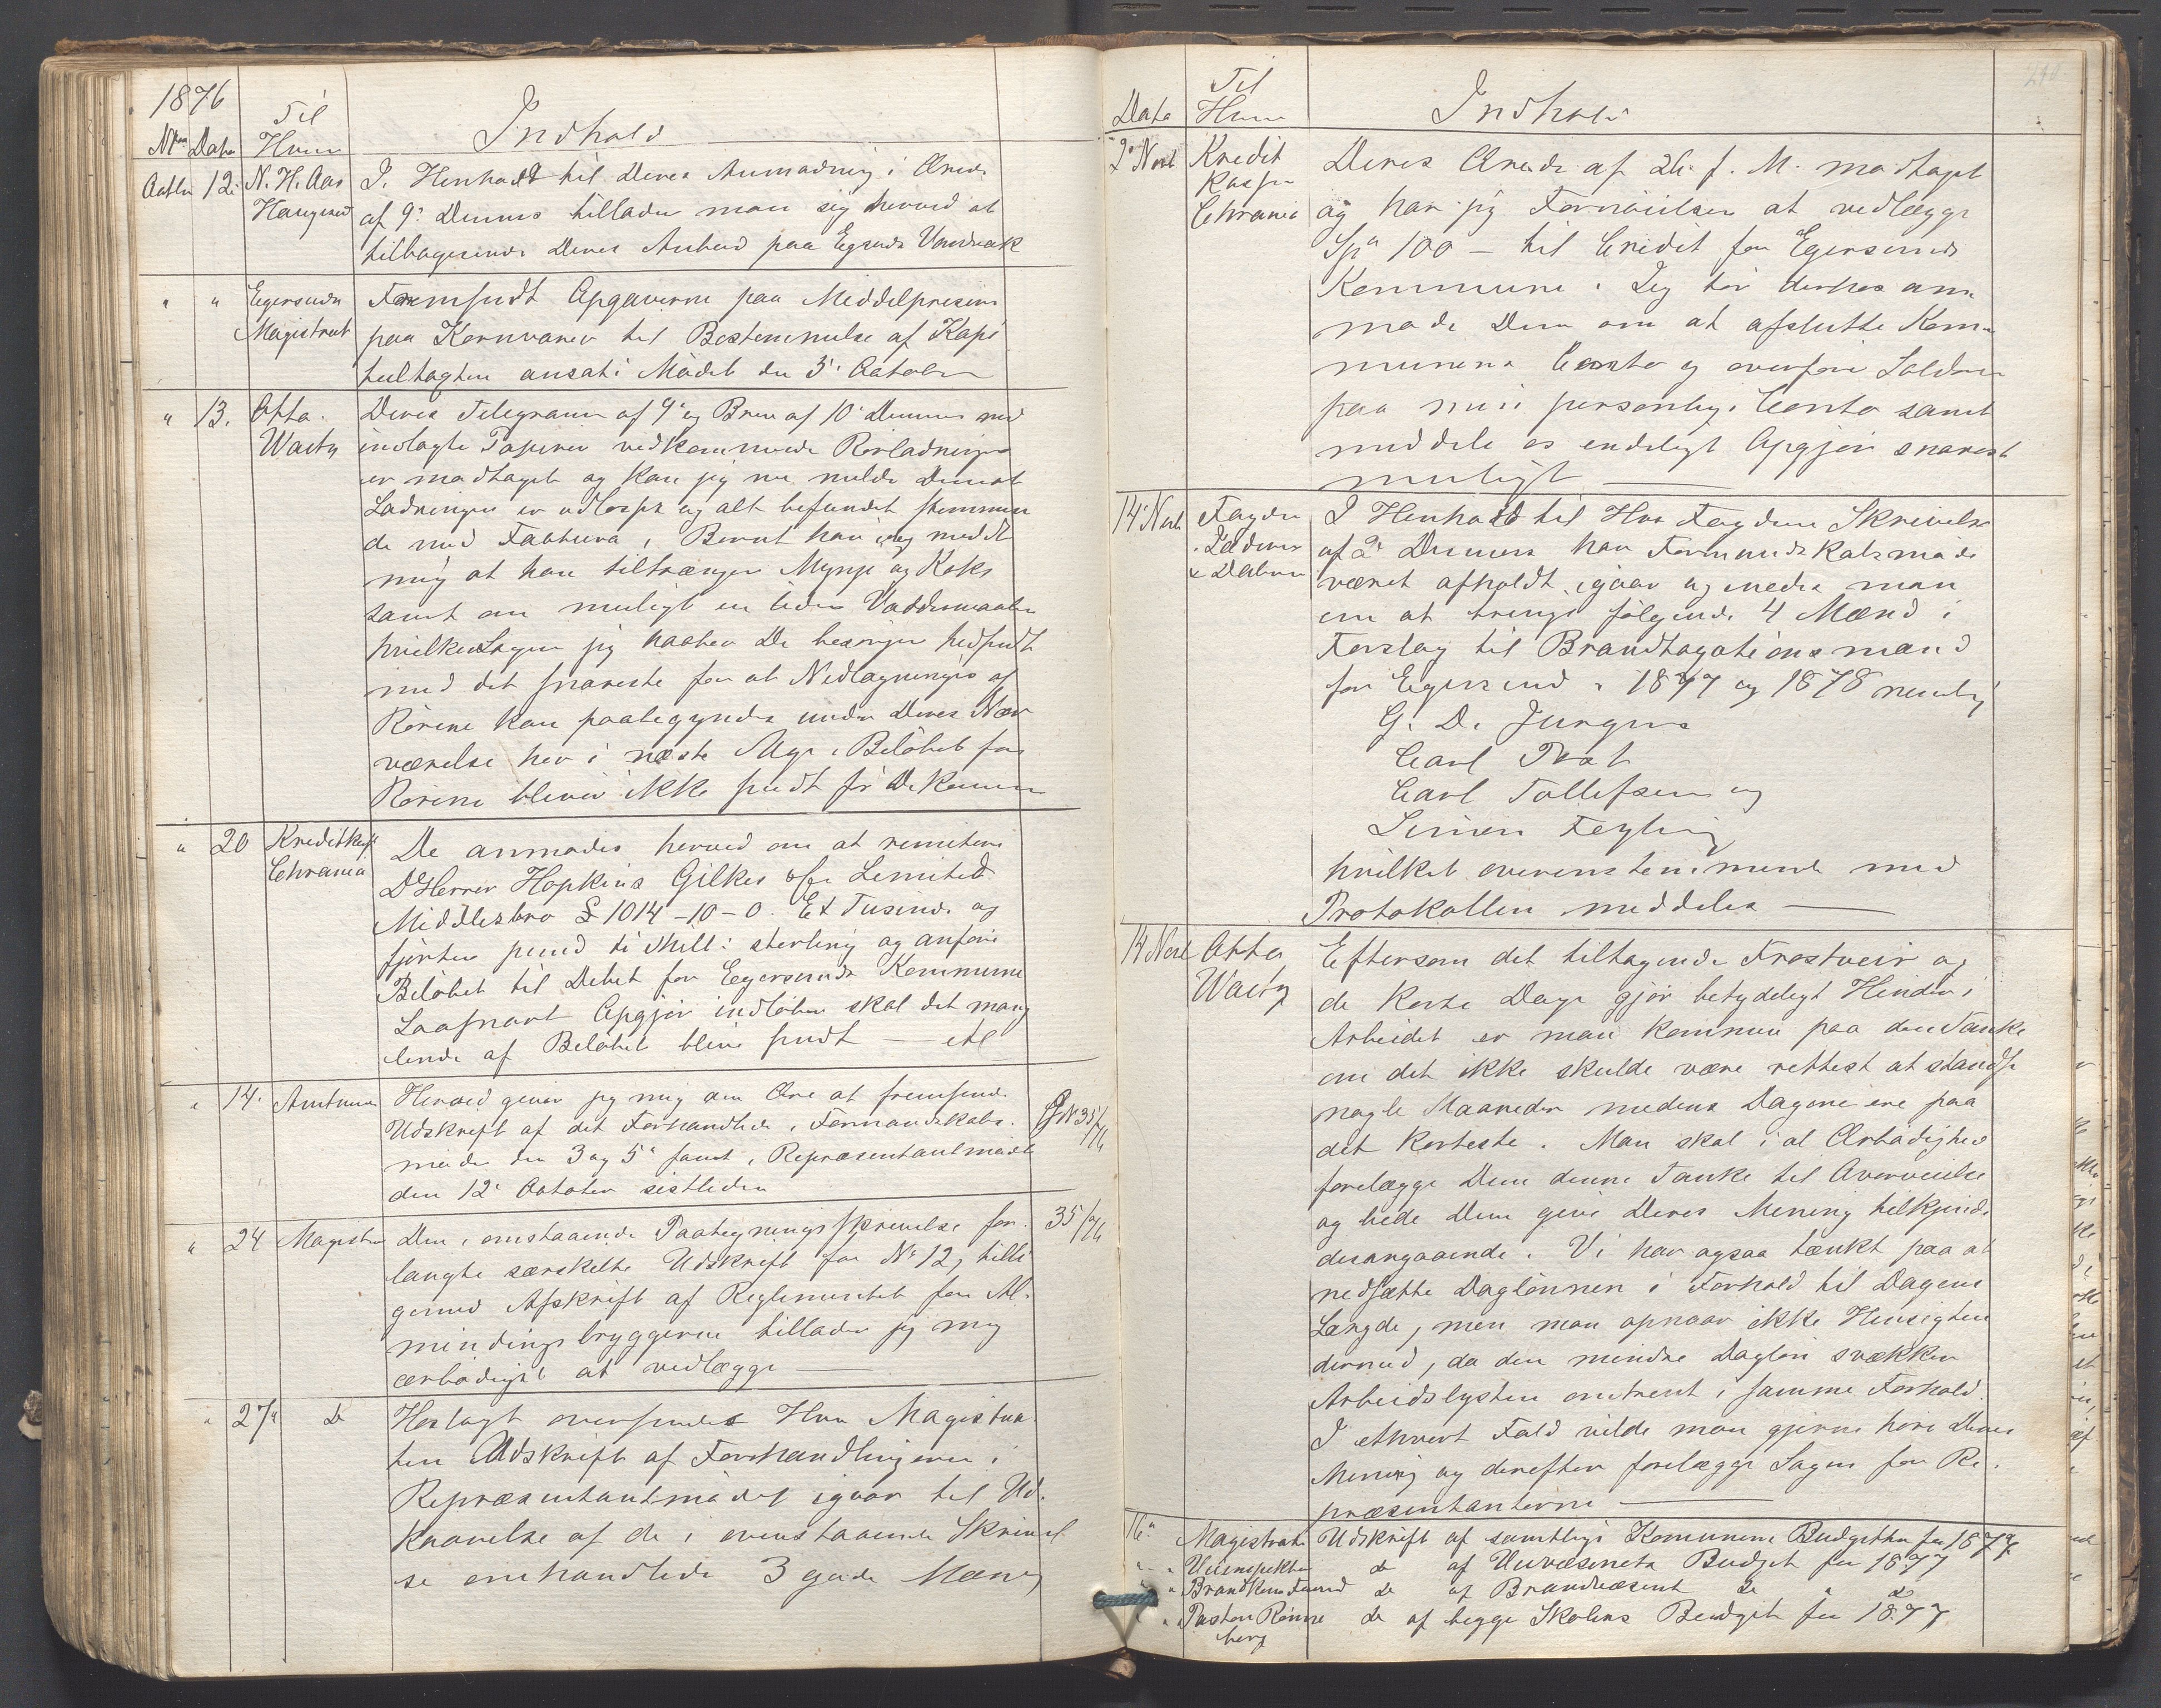 1876
Til
Data Hvem Indhold
Octbr 12. N. H. Aas I Henhold til Deres Anmodning i Ærede
Haugesund af 9. Dennes tillader man sig herved at
tilbagesende Deres Anbud paa Egersunds Vandværk
" " Egersunds Fremsendt Opgaverne paa Middelpriserne
Magistrat paa Kornvarer til Bestemmelse af Kapi
teltagten ansat i Mødet den 3. October
" 13. Otto Deres Telegram af 9. og Brev af 10. Dennes med
Waitz indlagte Papirer vedkommende Rørladningen
er modtaget og kan jeg nu melde Dem at
Ladningen er udlosset og alt befundet stemmen
de med Factura, Bernt har idag meddt
mig at han tiltrænger Mynje og Koks
samt om muligt en liden Vaddermaaler
hvilke Sager jeg haaber De besørger hidsendt
med det snareste for at Nedlægningen af
Rørene kan paabegyndes under Deres Nær
værelse her i næste Uge. Beløbet for
Rørene bliver ikke sendt før De kommer
" 20 Kreditkas De anmodes herved om at remitere
Chrania D'Herrer Hopkins Gilkes & Co Limited
Middlesbro £ 1014-10-0. Et Tusinde og
fjorten pund ti shill: sterling og anføre
Beløbet til Debet for Egersunds Kommune
Saasnart Opgjør indløber skal det mang
lende af Beløbet blive sendt — etc
" 14. Amtmand Herved giver jeg mig den Ære at fremsende
Udskrift af det Forhandlede i Formandskabs. J N 35/76
møder den 3 og 5. samt i Repræsentantmøde
den 12. October sistleden
" 24 Magistra Den i omstaaende Paategningsskrivelse for. 35/76
langte særskilte Udskrift for No 12, tilli
gemed Afskrift af Reglementet for Al.
mindingsbryggerne tillader jeg mig
ærbødigst at vedlægge —
" 27. Do Hoslagt oversendes Hrr Magistra
ten Udskrift af Forhandlingerne i
Repræsentantmødet igaar til Ud.
kaarelse af de i ovenstaaende Skrivel
se omhandlede 3 gode Mænd
Til
Data Hvem Indhold
2. Novb Kredit Deres Ærede af 26. f. M. modtaget
Kassen
Chrania og har jeg Fornøielsen at vedlægge
Spd 100 — til Credit for Egersunds
Kommune. Jeg tør derhos an.
mode Dem om at afslutte Kom.
munens Conto og overføre Saldoen
paa min personlige Conto samt
meddele os endeligt Opgjør snarest
muligt —
14. Novb Fogden I Henhold til Hrr Fogdens Skrivelse
i Jæderen af 2. Dennes har Formandskabsmøde
& Dalerne været afholdt igaar og
om at bringe følgende 4 Mænd i
Forslag til Brandtaxationsmænd
for Egersund i 1877 og 1878 nemlig
G. D. Jurgens
Carl Prat
Carl Tollefsen og
Simon Feyling
hvilket overenstemmende med
Protokollen meddeles —
14 Novb Otto Eftersom det tiltagende Frostveir og
Waitz de korte Dage gjør betydeligt Hinder i
Arbeidet er man kommen paa den Tanke
om det ikke skulde være rettest at standse
nogle Maaneder medens Dagene ere paa
det korteste. Man skal i al Ærbødighed
forelægge Dem denne Tanke til Overveielse
og bede Dem give Deres Mening tilkjende
desangaaende. Vi har ogsaa tænkt paa at
nedsætte Daglønnen i Forhold til Dagens
Længde, men man opnaar ikke Hensigten
dermed, da den mindre Dagløn svækker
Arbeidslysten omtrent i samme Forhold.
I ethvert Fald vilde man gjerne høre Deres
Mening og derefter forelægge Sagen for Re.
præsentanterne —
16. Magistrate Udskrift af samtlige Komunens Budgetter for 1877
" " Veiinspekten do af Veivæsenets Budget for 1877
" " Brandkom do af Brandvæsent do " do
" " Pastor Rønne do af begge Skolens Budget for 1877
berg